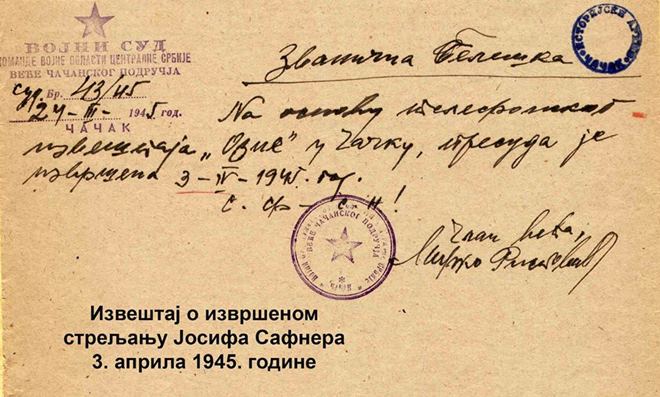 ВОЈНИ СУД
КОМАНДЕ ВОЈНЕ ОБЛАСТИ ЦЕНТРАЛНЕ СРБИЈЕ
ВЕЋЕ ЧАЧАНСКОГ ПОДРУЧЈА
Суд. Бр. 43/45
24-III- 1945 год.
ЧАЧАК
ИСТОРИЈСКИ АРХИВ
ЧАЧАК
Званична белешка
На основу телефонског
извештаја „Озне" у Чачку, пресуда је
извршена 3-IV-1945 год.
С. Ф. - С. Н!
ВЕЋЕ ЧАЧАНСКОГ ПОДРУЧЈА
Члан већа,
Мирко
Извештај о извршеном
стрељању Јосифа Сафнера
3. априла 1945. године